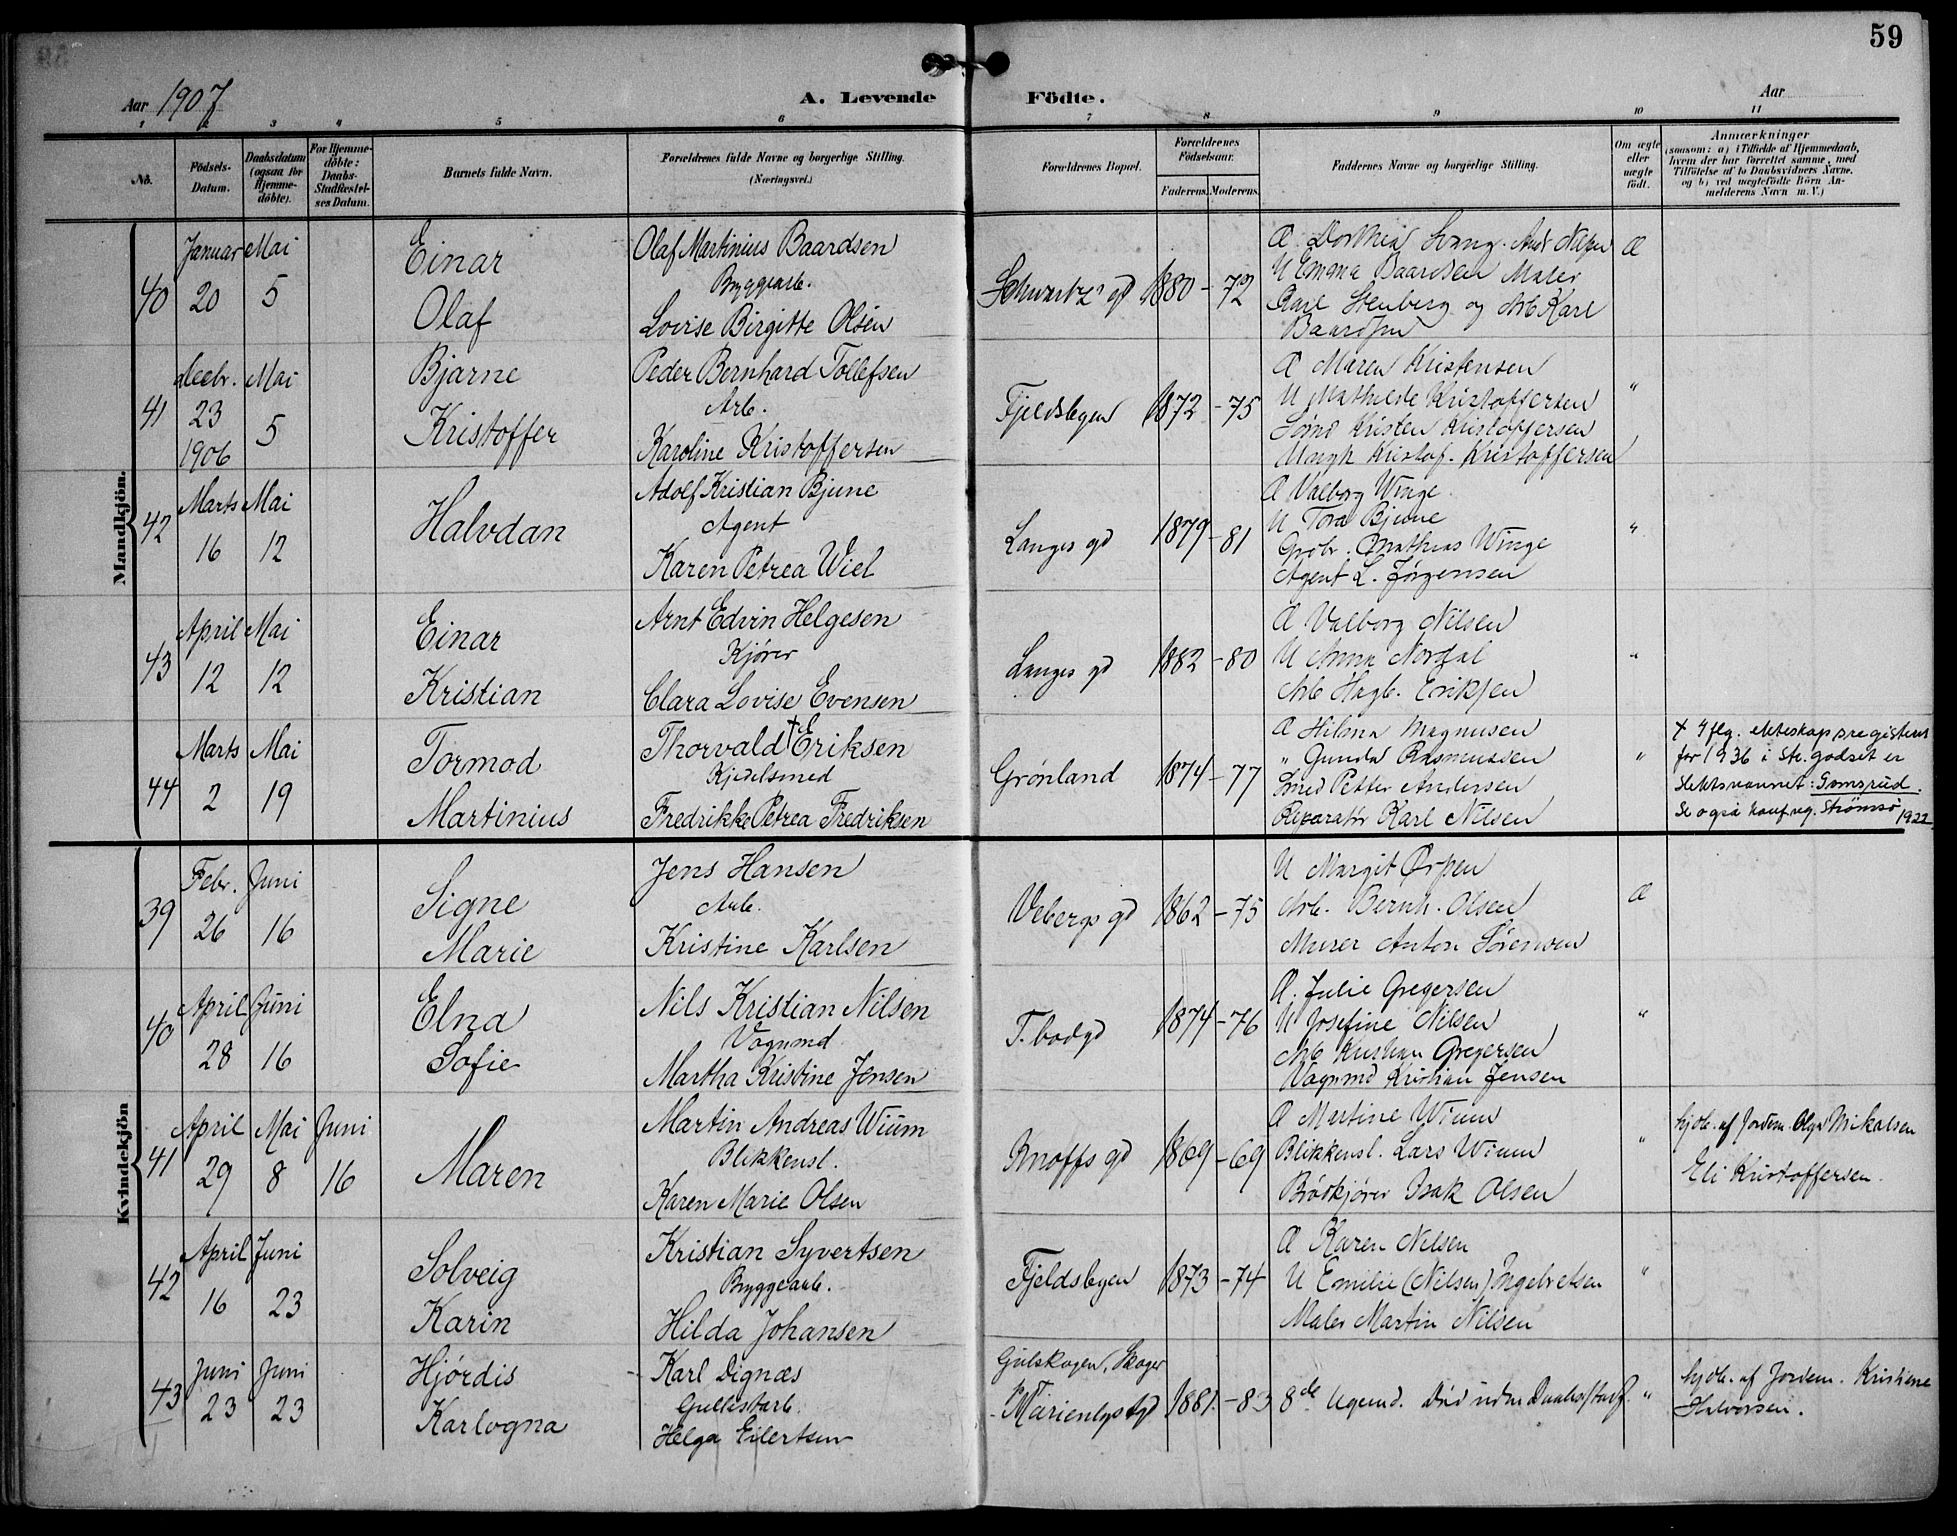 59
Aar 1907
A. Levende Födte.
Aar
1 2 3 4 5 6 7 8 9 10 11
No.
Födsels-Datum.
Daabsdatum (ogsaa for Hjemme-döbte).
For Hjemme-döbte: Daabs-Stadfæstel-ses Datum.
Barnets fulde Navn.
Forældrenes fulde Navne og borgerlige Stilling. (Næringsvei.)
Forældrenes Bopæl.
Forældrenes Födselsaar.
Faderens. Moderens.
Faddernes Navne og borgerlige Stilling.
Om ægte eller uægte födt.
Anmærkninger
(saasom: a) i Tilfælde af Hjemmedaab, hvem der har forrettet samme, med Tilföielse af to Daabsvidners Navne, og b) ved uægtefödte Börn An-melderens Navn m. V.)
Mandkjön.
40 Januar 20 Mai 5
Einar Olaf
Olaf Martinius Baardsen
Byggearb.
Lovise Birgitte Olsen
Schwartz's gd 1880 - 72
Æ Dorthea
U Emma Baardsen Maler
Karl Stenberg og Arb Karl
Baardsen
Æ
41 Decbr. 23 1906 Mai 5
Bjarne Kristoffer
Peder Bernhard Tollefsen
Arb.
Karoline Kristoffersen
Fjeldsbyen 1872 - 75
Æ Maren Kristensen
U Mathilde Kristoffersen
Kristen Kristoffersen
Kristof. Kristoffersen
"
42 Marts 16 Mai 12
Halvdan
Adolf Kristian Bjune
Agent
Karen Petrea Wiel
Langes gd 1879 - 81
Æ Valborg Winge
U Tora Bjune
Mathias Winge
Agent L. Jørgensen
"
43 April 12 Mai 12
Einar Kristian
Arnt Edvin Helgesen
Kjører
Clara Lovise Evensen
Langes gd 1882 - 80
Æ Valborg Nilsen
U Anna Nordal
Arb Hagb. Eriksen
"
44 Marts 2 Mai 19
Tormod Martinius
Thorvald + Eriksen
Kjedelsmed
Fredrikke Petrea Fredriksen
Grønland 1874 - 77
Æ Hilma Magnusen
" Gunda Rasmussen
Smed Petter Andersen
Reparatør Karl Nilsen
"
+ Iflg. ekteskapsregisteret
for 1936 i St. godset er
slektsnavnet: Gomsrud.
Se også konf.reg. Strømsø 1922
Kvindekjön
39 Febr. 26 Juni 16
Signe Marie
Jens Hansen
Arb.
Kristine Karlsen
Vebergs gd 1862 - 75
U Margit Ørpen
Arb. Bernh. Olsen
Murer Anton Sørensen
Æ
40 April 28 Juni 16
Elna Sofie
Nils Kristian Nilsen
Vognmd
Martha Kristine Jensen
T. bodgd 1874 - 76
Æ. Julie Gregersen
U Josefine Nilsen
Arb Kristian Gregersen
Vognmd Kristian Jensen
"
41 April 29 Mai 8 Juni 16
Maren
Martin Andreas Wium
Blikkensl.
Karen Marie Olsen
Knoffs gd 1869 - 69
Æ Martine Wium
Blikkensl. Lars Wium
Brødkjører Isak Olsen
"
hjdb. af Jordm. Olga Mikalsen
Eli Kristoffersen.
42 April 16 Juni 23
Solveig Karin
Kristian Syvertsen
Byggearb.
Hilda Johansen
Fjeldsbyen 1873 - 74
Æ Karen Nilsen
U Emilie (Nilsen) Ingebretsen
Maler Martin Nilsen
"
43 Juni 23 Juni 23
Hjørdis Karlogna
Karl Dignæs
Gullistarb.
Helga Eilertsen
Gulskogen, Skoger
Marienlyst gd 1881. - 83
8de Ugemd. Død uden Daabsstadf.
"
hjdb. af Jordm. Kristiane
Halvorsen.